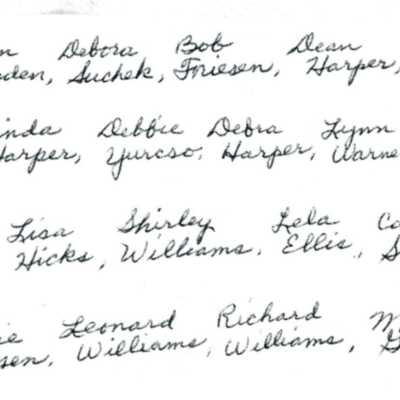 n Debora Bob Dean
den, Suchek, Friesen, Harper,
inda Debbie Debra Lynn
Harper, Yurcso, Harper, Warne
Lisa Shirley Lela Ca
Hicks, Williams, Ellis, S
ie Leonard Richard M
sen, Williams, Williams, G